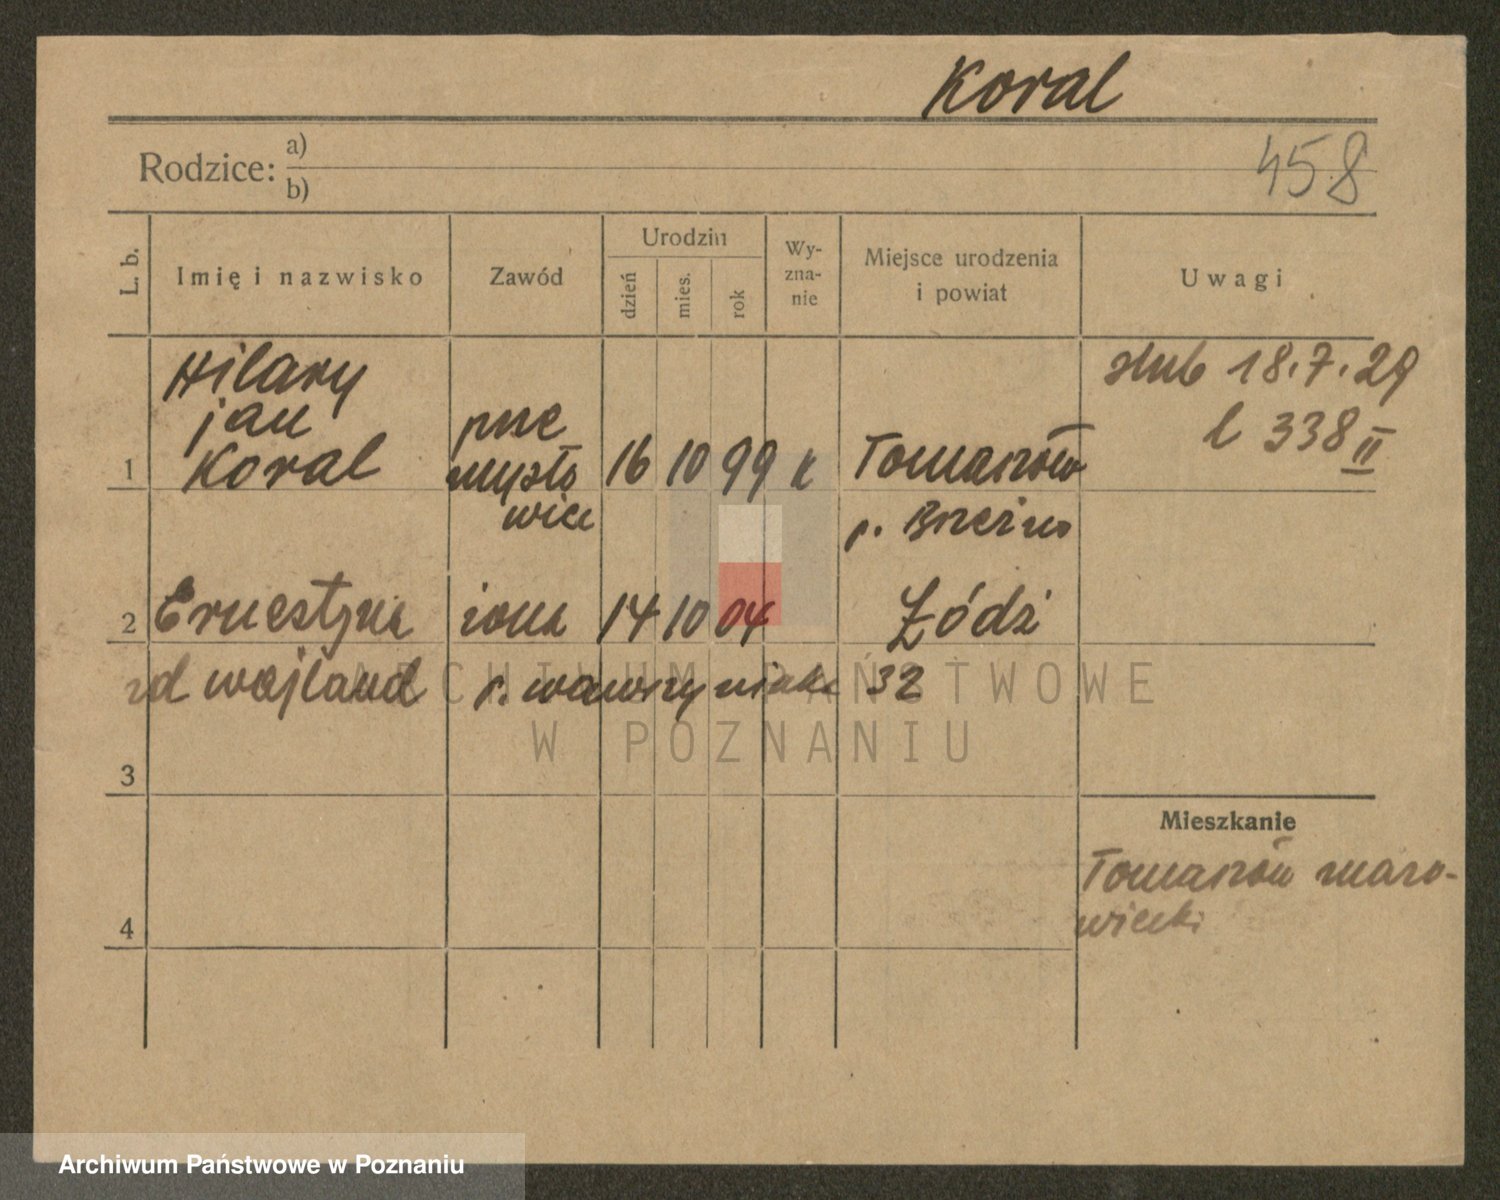 Koral
Rodzice: a)
b)
458
L. b. Imię i nazwisko Zawód Urodzin dzień mies. rok Wyznanie Miejsce urodzenia i powiat Uwagi
Hilary
jan
Koral
prze
mysło
wiec
1 16 10 99 k Tomaszów
p. Brzeziny
ślub 18.7.29
l 338 II
2 Ernestyna żona 14 10 04 Łódź
zd wajland r. wawrzyniaka 32
3
4
Mieszkanie
Tomaszów mazo-
wiecki
ARCHIWUM PAŃSTWOWE
W POZNANIU
Archiwum Państwowe w Poznaniu